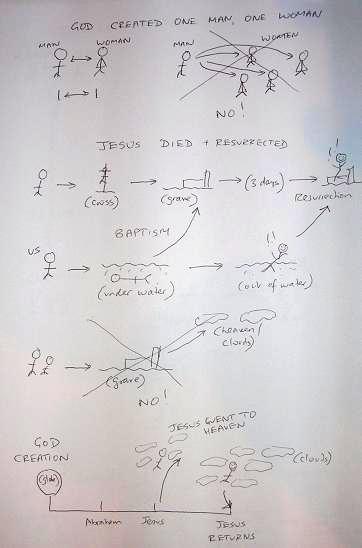 GOD CREATED ONE MAN, ONE WOMAN
MAN WOMAN MAN WOMEN
1 ↔ 1
NO!
JESUS DIED + RESURRECTED
(cross) (grave) (3 days) Resurrection
BAPTISM
US
(under water) (out of water)
(heaven/
clouds)
(grave)
NO!
JESUS WENT TO
HEAVEN
GOD
CREATION
(clouds)
Abraham Jesus
JESUS
RETURNS